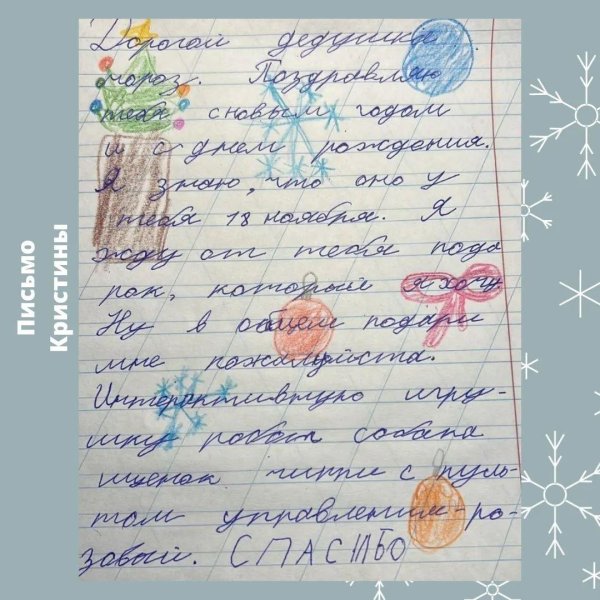 Письмо
Кристины
Дорогой дедушка
мороз. Поздравляю
тебя сновым годом
и с днем рождения.
Я знаю, что оно у
тебя 18 ноября. Я
жду от тебя пода
рок, который я хочу
Ну в общем подари
мне пожалуйста.
Интерактивную игру-
шку робот собака
щенок чиппи с пуль-
том управления-ро-
зовый. СПАСИБО